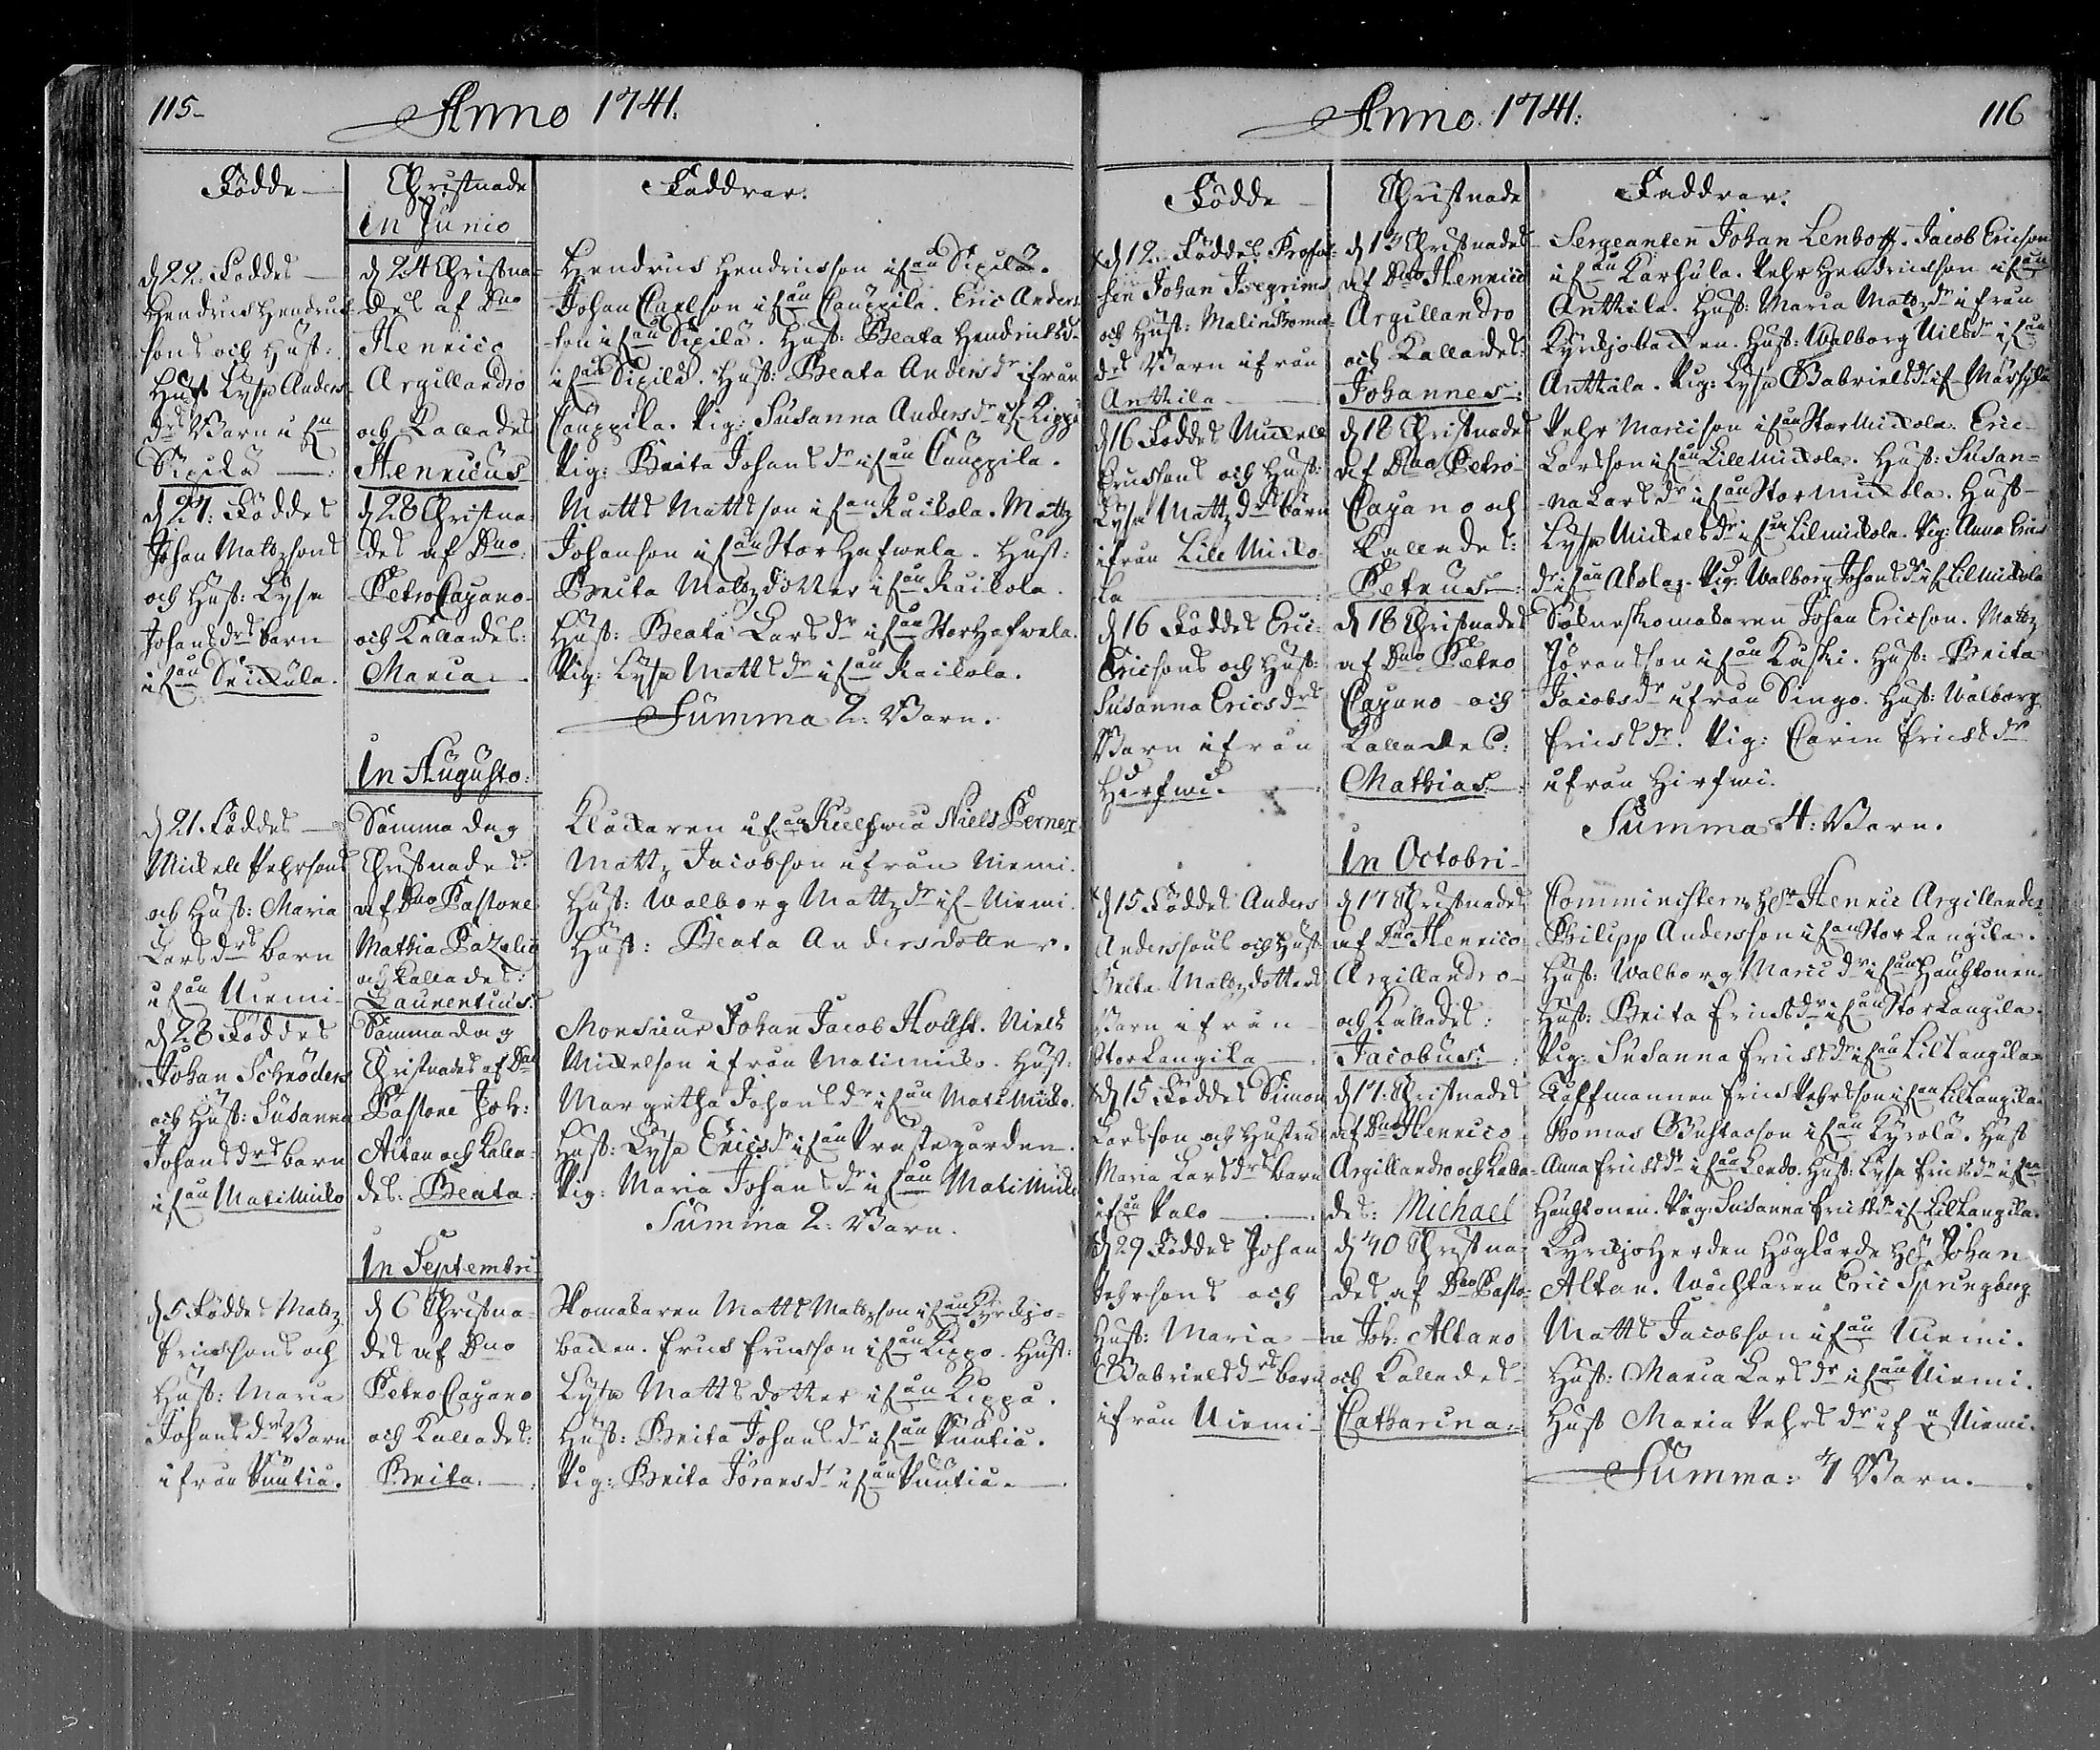 115
Anno 1741.
Födde
Christnade
Faddrar.
In Junio
d 22. Föddes
Hendrich Hendrich-
sons och Hust:
Hust Lysa Anders
drs Barn i fn
Sipilä
d 24 Christna-
des af Dno
Henrico
Argillandro
och Kallades
Henricus
Hendrich Hendrichson ifån Sipilä.
Johan Carlson ifån Cauppila. Eric Anders-
son ifån Sipilä. Hust: Beata Hendrichsdr
ifån Sipilä. Hust: Beata Andersdr ifrån
Cauppila. Pig: Susanna Andersdr if Kippo
Pig: Brita Johansdr ifån Cauppila.
d 27: Föddes
Johan Mattzsons
och Hust: Lysa
Johansdrs barn
ifån Seickula.
d 28 Christna
des af Dno:
Petro Cajano
och Kallades:
Maria
Matts Mattsson ifån Kaikola. Mattz
Johanson ifån Storhafwela. Hust:
Brita Mattzdotter ifån Kaikola.
Hust: Beata Larsdr ifån Storhafwela.
Pig: Lysa Mattsdr ifån Kaikola.
Summa 2: Barn.
In Augusto:
d 21. Föddes
Mickell Pehrsons
och Hust: Maria
Larsdrs barn
ifån Niemi
Samma dag
Christnades
af Dno Pastore
Mathia Pazelio
och Kallades:
Laurentius:
Klockaren ifån Niels Perner
Mattz Jacobson ifrån Niemi.
Hust: Walborg Mattzdr if Niemi.
Hust: Beata Andersdotter.
d 28 Föddes
Johan Schröders
och Hust: Susanna
Johansdrs barn
ifån Matimicko
Samma dag
Christnades af Dno
Pastore Joh:
Altan och Kalla-
des: Beata:
Monsieur Johan Jacob Hollst. Niels
Mickelson ifrån Matimicko. Hust:
Margetha Johansdr ifån Matimicko.
Hust: Lysa Ericsdr ifån Prästegården.
Pig: Maria Johansdr ifån Matimicko
Summa 2: Barn.
In Septembri
d 5 Föddes Mattz
Ericksons och
Hust: Maria
Johansdrs Barn
ifrån Puntia.
d 6 Christna-
des af Dno
Petro Cajano
och Kallades:
Brita.
Skomakaren Matts Mattzson ifån Kyrckjo-
backen. Erich Erichson ifån Kippo. Hust:
Lysa Mattsdotter ifån Kippa.
Hust: Brita Johansdr ifån Puntia.
Pig: Brita Jöransdr ifån Puntia.
Anno 1741:
116
Födde
Christnade
Faddrar.
d 12. Föddes Profos-
sen Johan Isegrims
och Hust: Malin Thoma-
drs Barn ifrån
Anttila
d 13 Christnades
af Dno Henrico
Argillandro
och Kallades:
Johannes:
Sergeanten Johan Lenhoff. Jacob Ericson
ifån Karhula. Pehr Hendrichson ifån
Anttila. Hust: Maria Mattzdr ifrån
Kyrckjobacken. Hust: Walborg Nilsdr ifån
Anttala. Pig: Lysa Gabrielsdr if
d 16 Föddes Mickell
Erickssons och Hust:
Lysa Mattzdrs barn
ifrån Lill Micko-
la
d 18 Christnades
af Dno Petro
Cajano och
Kallades:
Petrus
Pehr Maricson ifån Stormickola. Eric
Larsson ifån Lillmickola. Hust: Susan-
na Larsdr ifån Stormickola. Hust
Lysa Mickelsdr ifån Lilmickola. Pig: Anna Erics
dr ifån. Pig: Walborg Johansdr if Lilmickola
d 16 Föddes Eric
Ericsons och Hust:
Susanna Ericsdrs
Barn ifrån
Hirfwi.
d 18 Christnades
af Dno Petro
Cajano och
Kallades:
Mathias
Johan Ericson. Mattz
Jöransson ifån Kuski. Hust: Brita
Jacobsdr ifrån Singo. Hust: Walborg
Ericsdr. Pig: Carin Ericsdr
ifrån Hirfwi.
Summa 4: Barn.
In Octobri
d 15 Föddes Anders
Andersons och Hust
Brita Mattzdotters
Barn ifrån
Storlangila
d 17 Christnades
af Dno Henrico
Argillandro
och Kallades:
Jacobus:
Comministern Hr Henric Argillander
Philipp Andersson ifån Storlangila.
Hust: Walborg Maricdr ifån Hauhtonen
Hust: Brita Ericsdr ifån Storlangila.
Pig: Susanna Ericsdr ifån Lillangila
d 15 Föddes Simon
Larsson och Hustru
Maria Larsdrs barn
ifån Palo
d 17. Christnades
af Dno Henrico
Argillandro och Kalla-
des: Michael
Erich Pehrsson ifån Lillangila.
Thomas Gustavson ifån Kyrola. Hust
Anna Ericsdr ifån Lendo. Hust: Lysa Ericsdr ifån
Hauhtonen. Pig: Susanna Ericsdr if Lillangila.
d 29 Föddes Johan
Pehrsons och
Hust: Maria
Gabrielsdrs barn
ifrån Niemi
d 30 Christna
des af Dno Pasto-
re Joh: Altano
och Kallades
Catharina:
Kyrckjoherden Höglärde Hr Johan
Altan. Wachtaren Eric Sprungberg
Matts Jacobson ifån Niemi.
Hust: Maria Larsdr ifån Niemi.
Hust Maria Pehrsdr ifån Niemi.
Summa: 3 Barn.